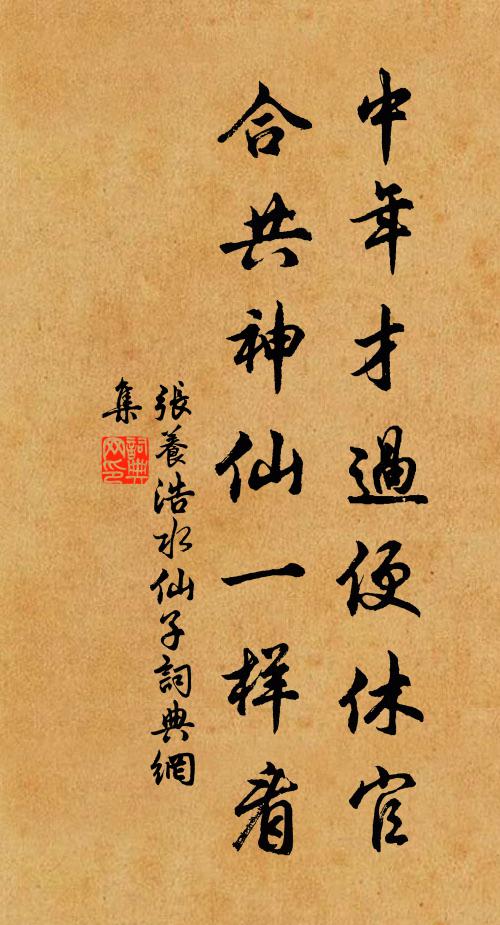 中年才過便休官
合共神仙一样看
張養浩水仙子詞典網
集
詞典網印